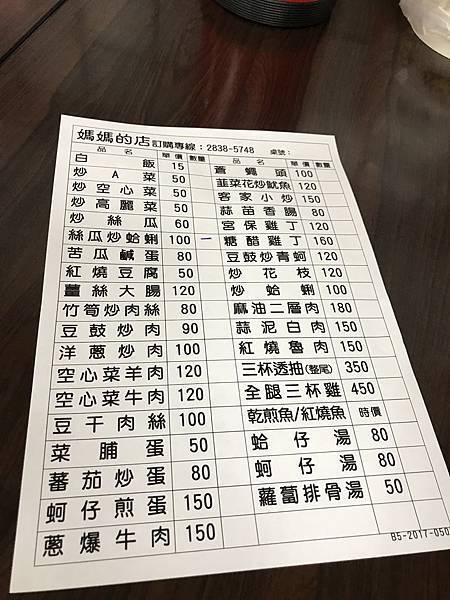 媽媽的店 訂購專線：2838-5748 桌號：
品名 單價 數量 品名 單價 數量
白飯 15 蒼蠅頭 100
炒A菜 50 韮菜花炒魷魚 120
炒空心菜 50 客家小炒 150
炒高麗菜 50 蒜苗香腸 80
炒絲瓜 60 宮保雞丁 120
絲瓜炒蛤蜊 100 一 糖醋雞丁 160
苦瓜鹹蛋 80 豆鼓炒青蚵 120
紅燒豆腐 50 炒花枝 120
薑絲大腸 120 炒蛤蜊 100
竹筍炒肉絲 80 麻油二層肉 180
豆鼓炒肉 90 蒜泥白肉 150
洋蔥炒肉 100 紅燒魯肉 150
空心菜羊肉 120 三杯透抽(整尾) 350
空心菜牛肉 120 全腿三杯雞 450
豆干肉絲 100 乾煎魚/紅燒魚 時價
菜脯蛋 50 蛤仔湯 80
蕃茄炒蛋 80 蚵仔湯 80
蚵仔煎蛋 150 蘿蔔排骨湯 50
蔥爆牛肉 150
B5-2017-050